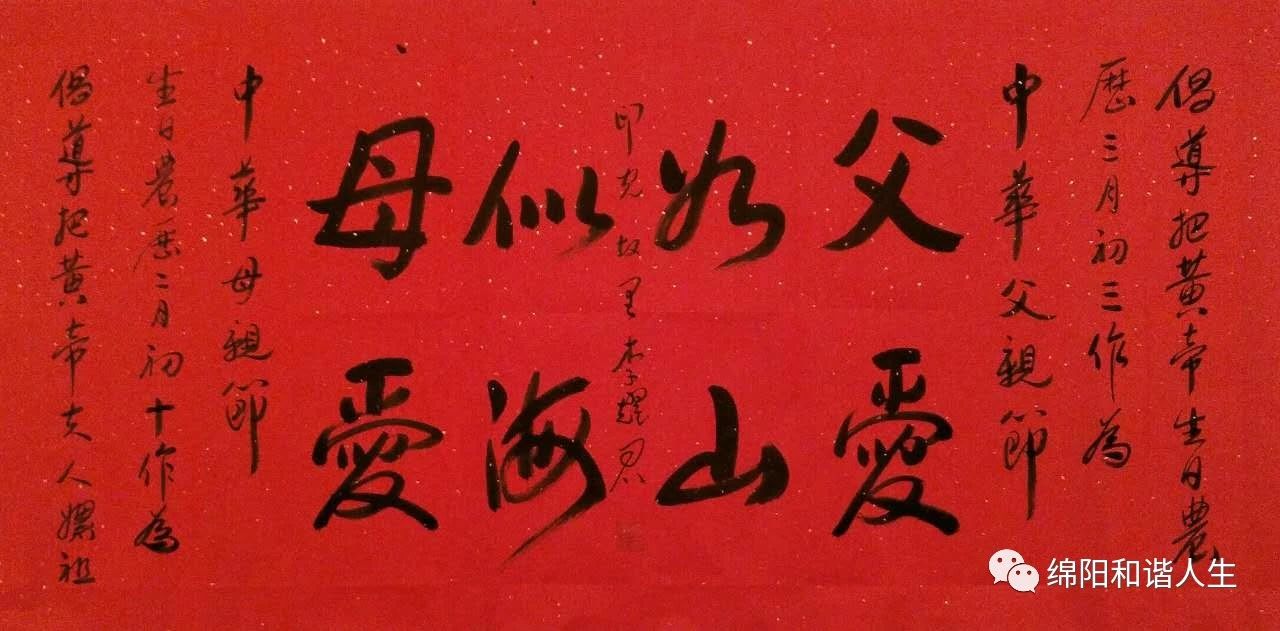 倡導把黄帝生日農
歷三月初三作為
中華父親節
父愛
如山
故里李耀君
倡導把黄帝夫人嫘祖
生日農歷二月初十作為
中華母親節
母愛
似海
绵阳和谐人生